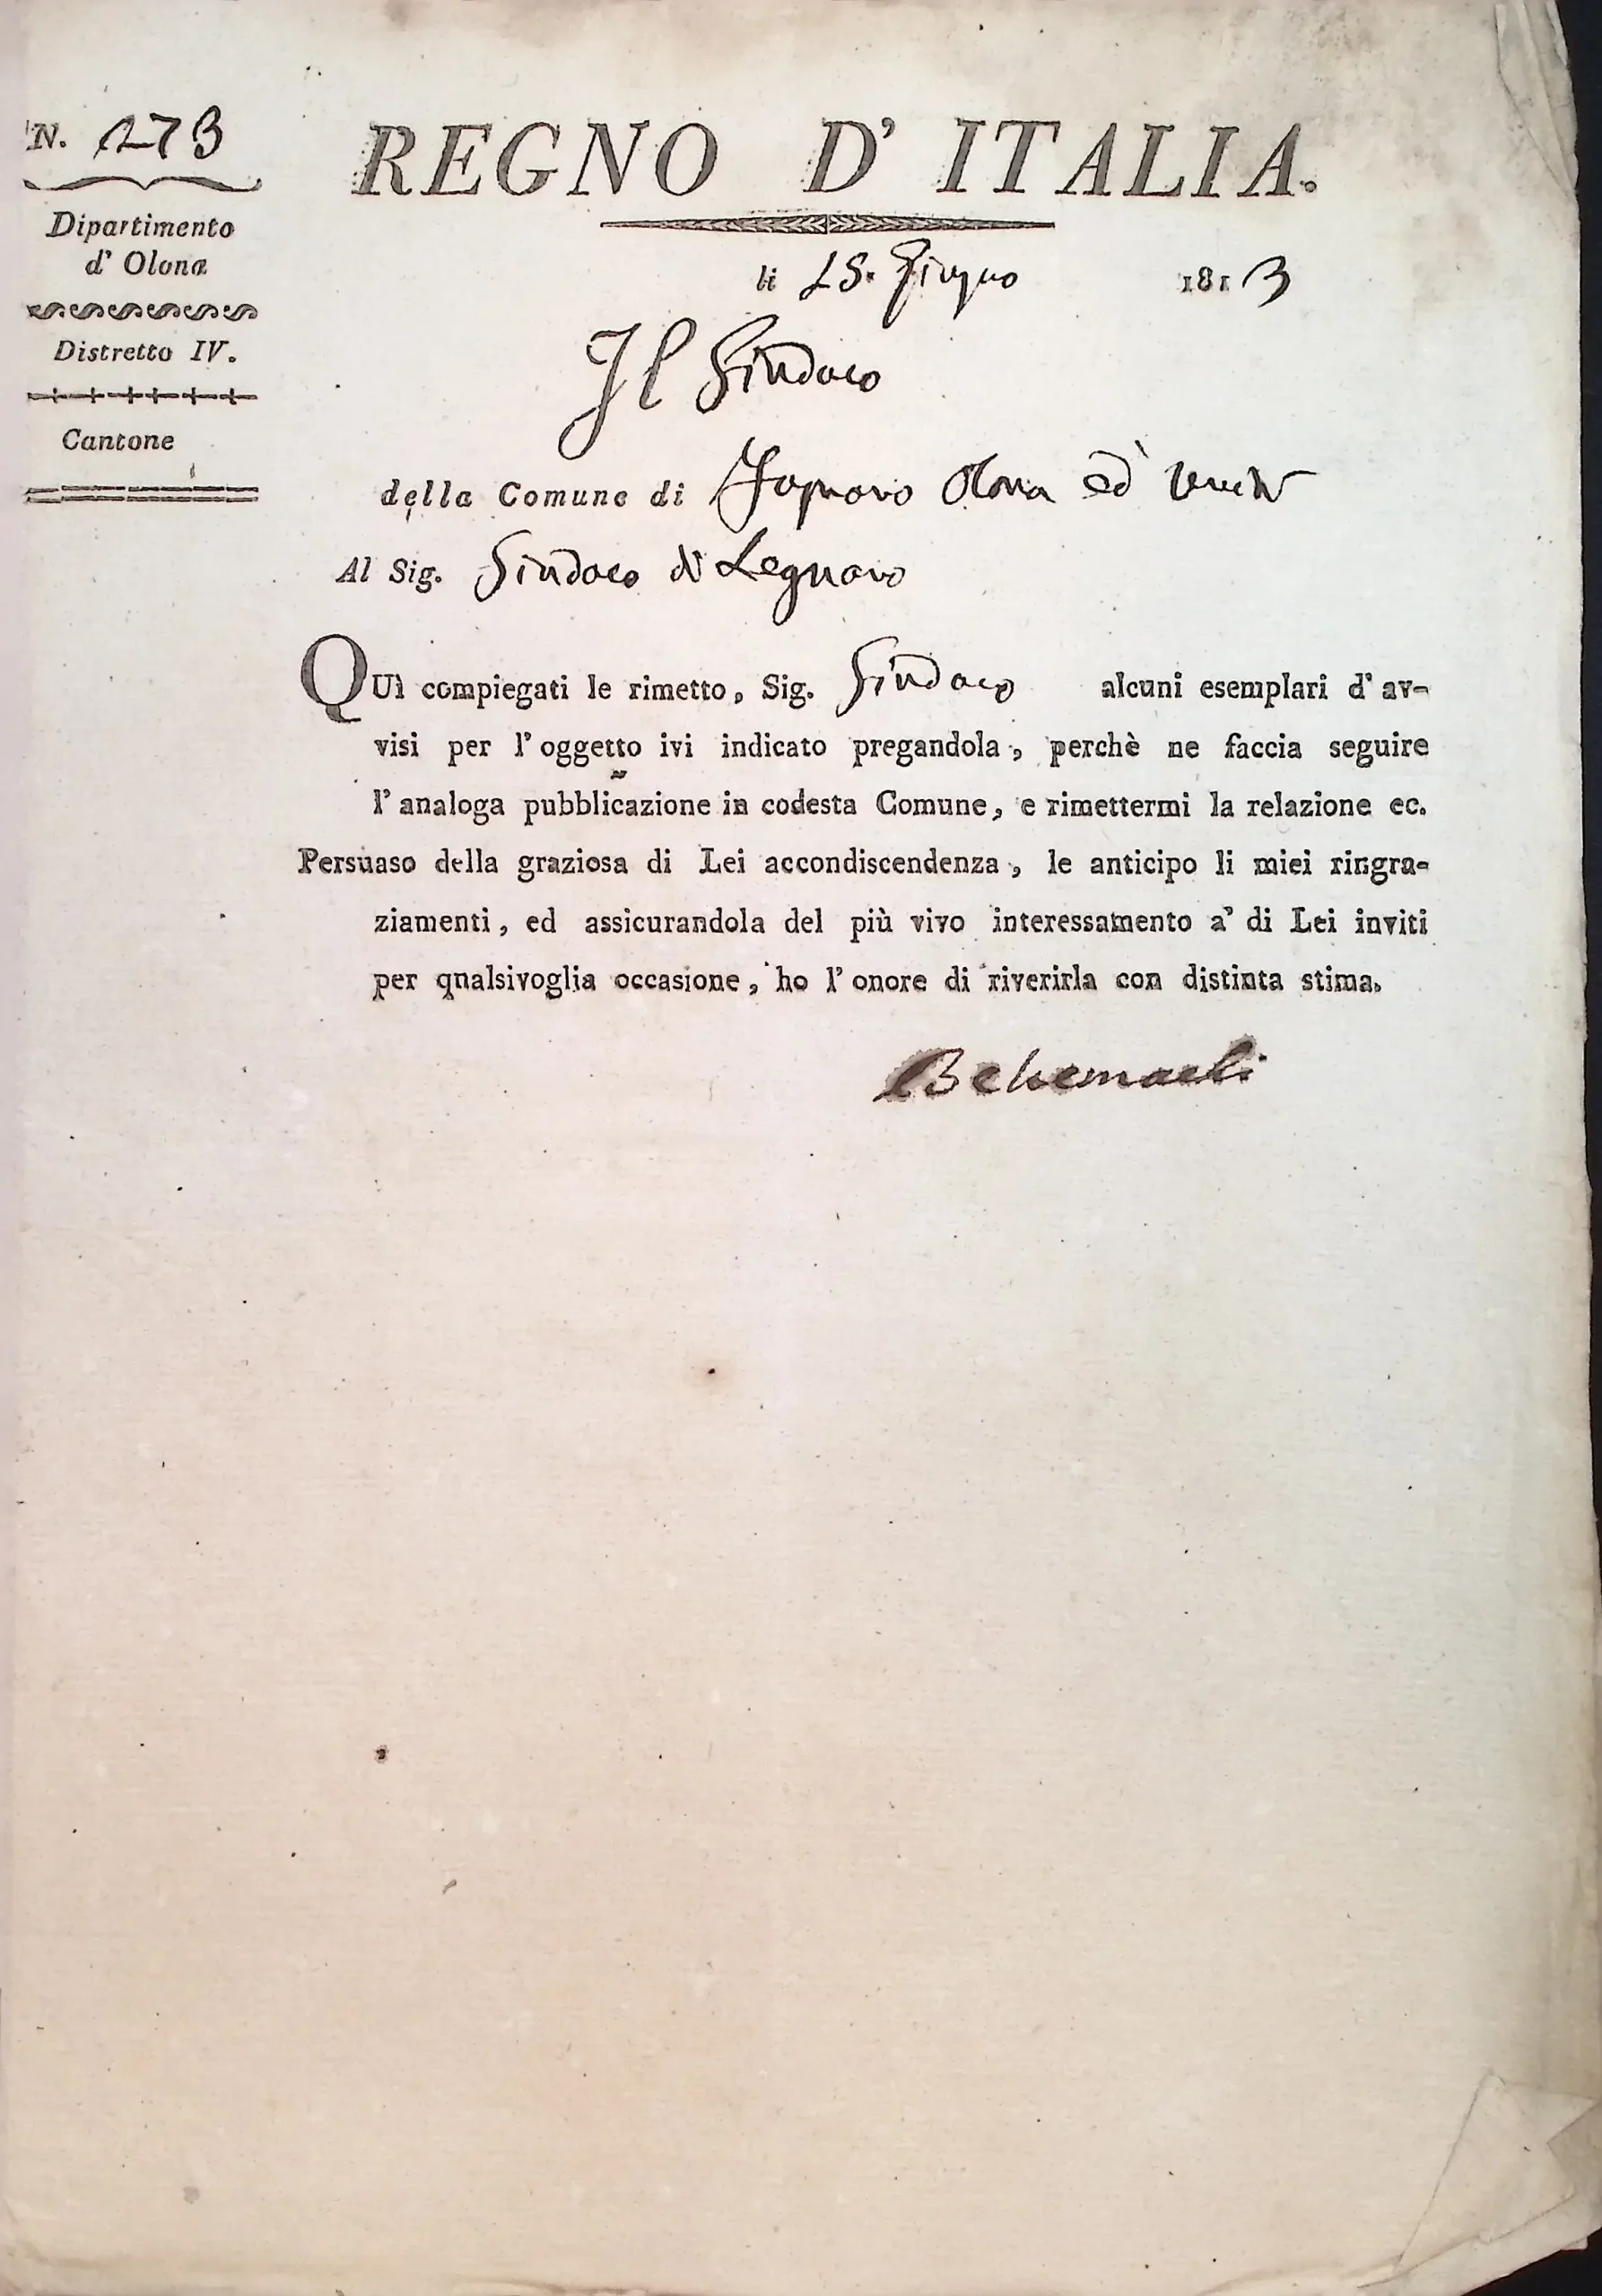 N. 273
Dipartimento
d' Olona
Distretto IV.
Cantone
REGNO D' ITALIA.
li 15. Giugno 1813
Il Sindaco
della Comune di Fagnano Olona ed Uniti
Al Sig. Sindaco di Legnano
QUì compiegati le rimetto, Sig. Sindaco alcuni esemplari d' av-
visi per l' oggetto ivi indicato pregandola, perchè ne faccia seguire
l' analoga pubblicazione in codesta Comune, e rimettermi la relazione ec.
Persuaso della graziosa di Lei accondiscendenza, le anticipo li miei ringra-
ziamenti, ed assicurandola del più vivo interessamento a' di Lei inviti
per qualsivoglia occasione, ho l' onore di riverirla con distinta stima.